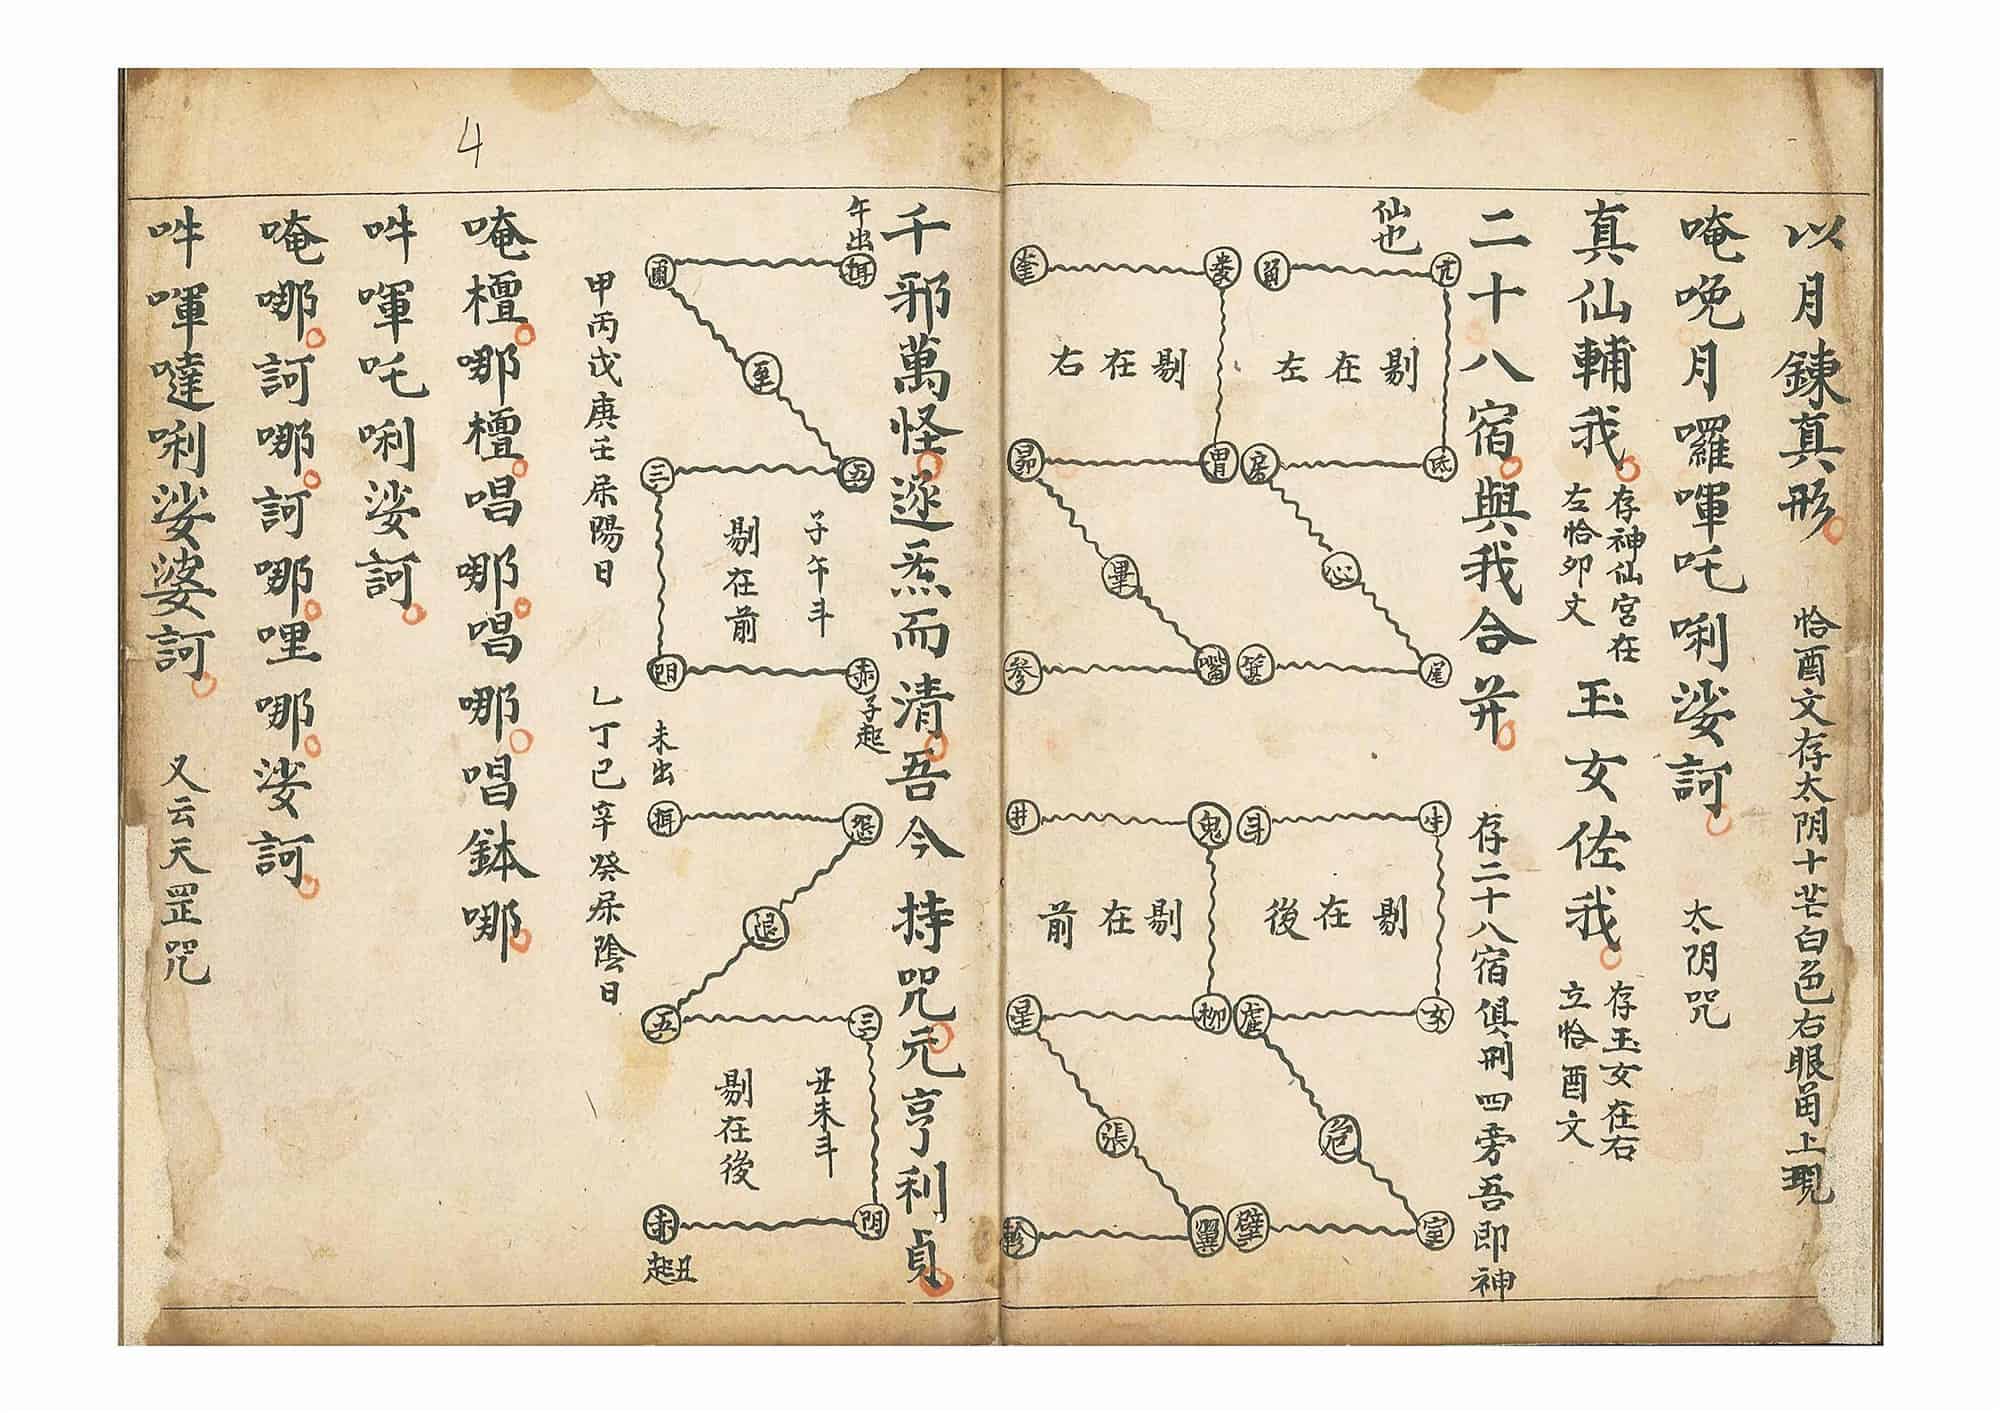 以月鍊真形 恰酉文存太阴十芒白色右眼角上現
唵晚月囉㖞吒唎娑訶 太阴咒
真仙輔我 存神仙宮在左恰卯文 玉女佐我 存玉女在右立恰酉文
二十八宿與我合并 存二十八宿俱刑四旁吾即神
仙也
亢 角
氐 房
心
尾 箕
剔在左
婁 奎
胃 昴
畢
嘴 參
剔在右
牛 斗
女 虛
危
室 壁
剔在後
鬼 井
柳 星
張
翼 軫
剔在前
千邪萬怪逐炁而清吾今持咒元亨利貞
午出
子午斗
剔在前
五 三
赤 阴
子起
未出
退
三 五
丑未斗
剔在後
阴 赤
丑起
甲丙戊庚壬屎陽日 乙丁己辛癸屎陰日
唵檀哪檀唱哪唱哪唱鉢哪
吽㖞吒唎娑訶
唵哪訶哪訶哪哩哪娑訶
吽㖞噠唎娑婆訶 又云天罡咒
4